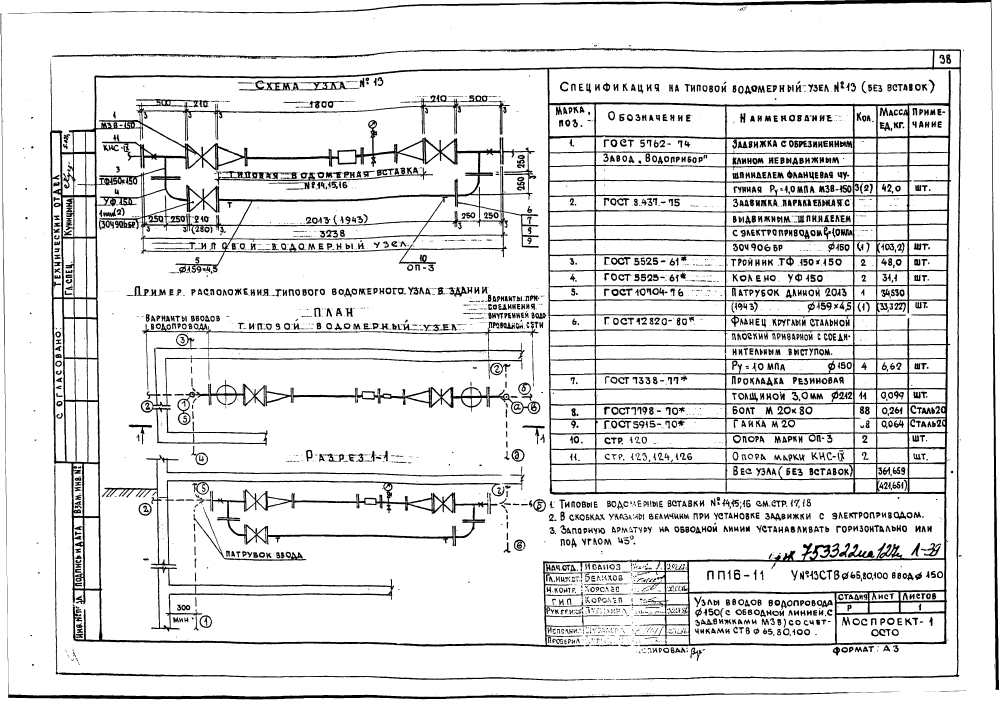 38
Схема узла №13
500 210 1800 210 500
1
МЗВ-150
11
КНС-IX
3
ТФ150×150
4
УФ 150
1 или (2)
(30ч906БР)
Типовая водомерная вставка
№14,15,16
250
250
250 250 210 2013 (1943) 250 250
(280)
3238
Типовой водомерный узел
5
Ø159×4,5
10
ОП-3
6
7
8
9
Пример расположения типового водомерного узла в здании
План
Варианты вводов
водопровода
Типовой водомерный узел
Варианты при-
соединения
внутренней водо
проводной сети
Разрез 1-1
Патрубок ввода
300
мин
Спецификация на типовой водомерный узел №13 (без вставок)
Марка, поз. Обозначение Наименование Кол. Масса ед, кг. Приме-чание
1. ГОСТ 5762-74 Задвижка с обрезиненным
Завод „Водоприбор" клином невыдвижным
шпинделем фланцевая чу-
гунная Ру=1,0 МПа МЗВ-150 3(2) 42,0 шт.
2. ГОСТ 8.437-75 Задвижка параллельная с
выдвижным шпинделем
с электроприводом Ру=1,0 МПа
30ч906БР Ø150 (1) (103,2) шт.
3. ГОСТ 5525-61* Тройник ТФ 150×150 2 48,0 шт.
4. ГОСТ 5525-61* Колено УФ150 2 31,1 шт.
5. ГОСТ 10704-76 Патрубок длиной 2013 1 34,530
(1943) Ø159×4,5 (1) (33,322) шт.
6. ГОСТ 12820-80* Фланец круглый стальной
плоский приварной с соеди-
нительным выступом.
Ру=10 МПа Ø150 4 6,62 шт.
7. ГОСТ 7338-77* Прокладка резиновая
толщиной 3,0мм Ø212 11 0,099 шт.
8. ГОСТ 7798-70* Болт М 20×80 88 0,261 Сталь20
9. ГОСТ 5915-70* Гайка М20 0,064 Сталь20
10. стр. 120 Опора марки ОП-3 2 шт.
11. стр. 123, 124, 126 Опора марки КНС-IX 2 шт.
Вес узла (без вставок) 361,659
(421,651)
1. Типовые водомерные вставки №14,15,16 см. стр. 17, 18
2. В скобках указаны величины при установке задвижки с электроприводом.
3. Запорную арматуру на обводной линии устанавливать горизонтально или
под углом 45°.
Нач. отд.
Гл. инж. от.
Белихов
Н. контр. Королев
ГИП Королев
Исполнил
Проверил
ПП16-11 У №13СТВ Ø65,80,100 ввод Ø 150
Узлы вводов водопровода
Ø150 (с обводной линией, с
задвижками МЗВ) со счет-
чиками СТВ Ø 65,80,100.
Стадия Лист Листов
Р 1
Моспроект-1
ОСТО
Копировал:
Формат: А3
Технический отдел
Гл. спец. Куницина
Согласовано:
Взам. инв. №
Подпись и дата
Инв. № подл.